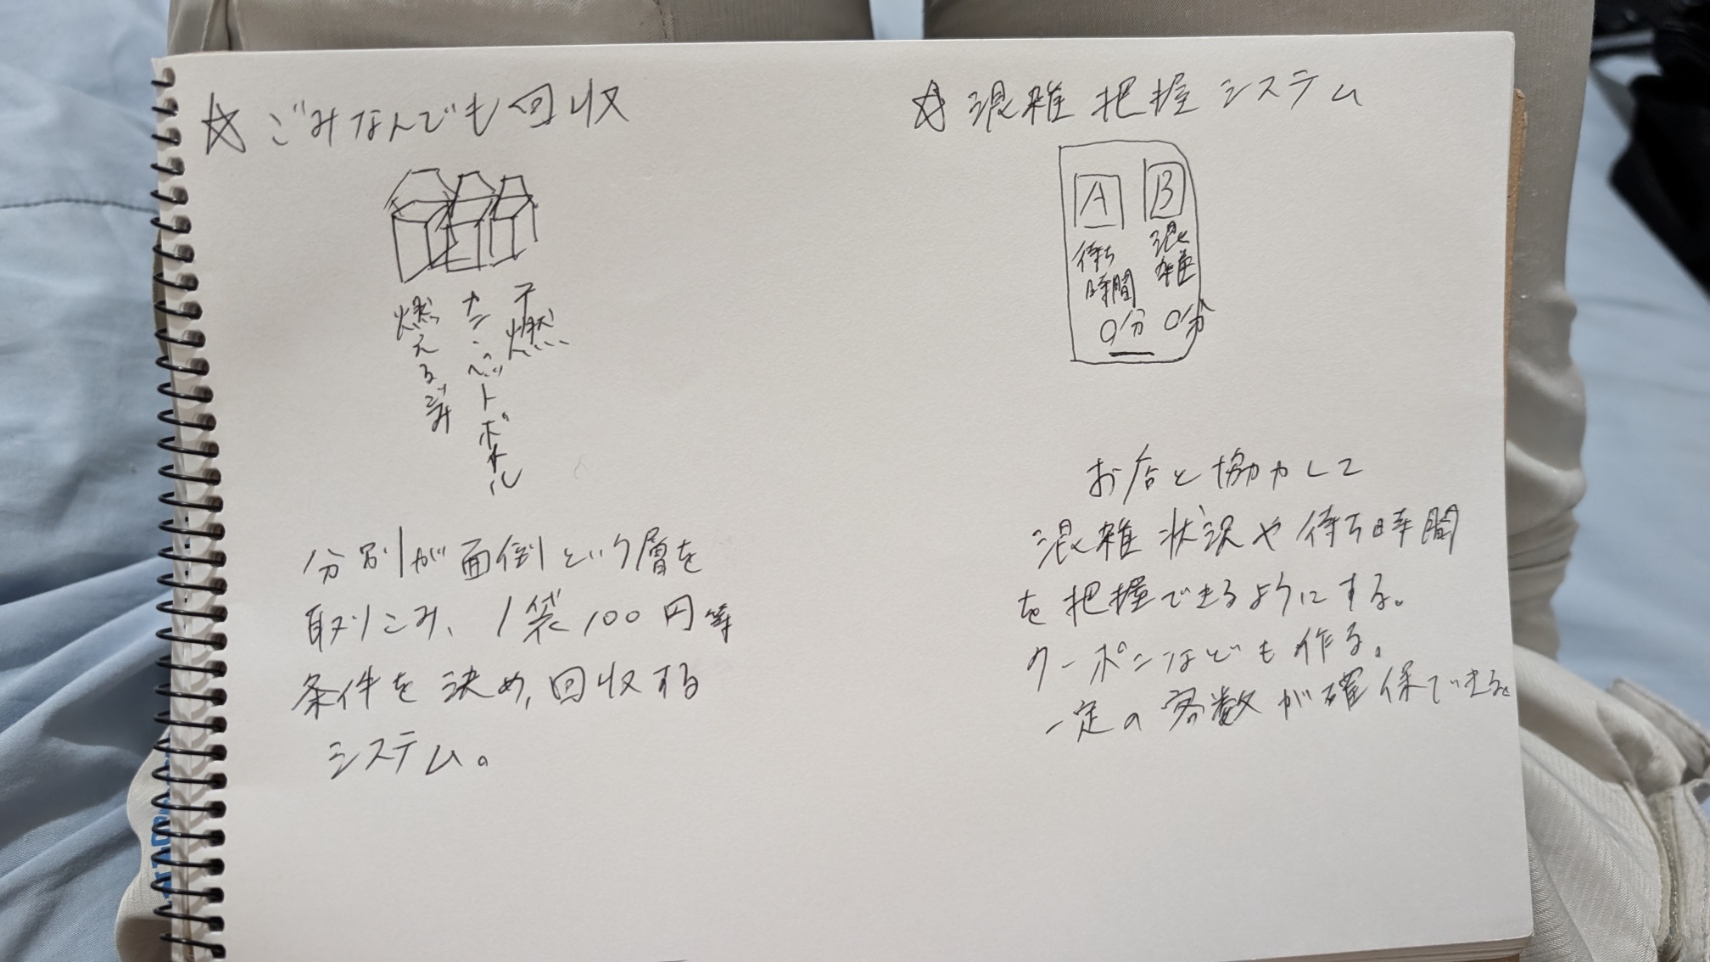 ☆ ごみなんでも回収
燃えるゴミ
カン・ペットボトル
不燃
分別が面倒という層を
取りこみ、1袋100円等
条件を決め、回収する
システム。
☆ 混雑把握システム
A
待ち
時間
0分
B
混
雑
0分
お店と協力して
混雑状況や待ち時間
を把握できるようにする。
クーポンなども作る。
一定の客数が確保できると